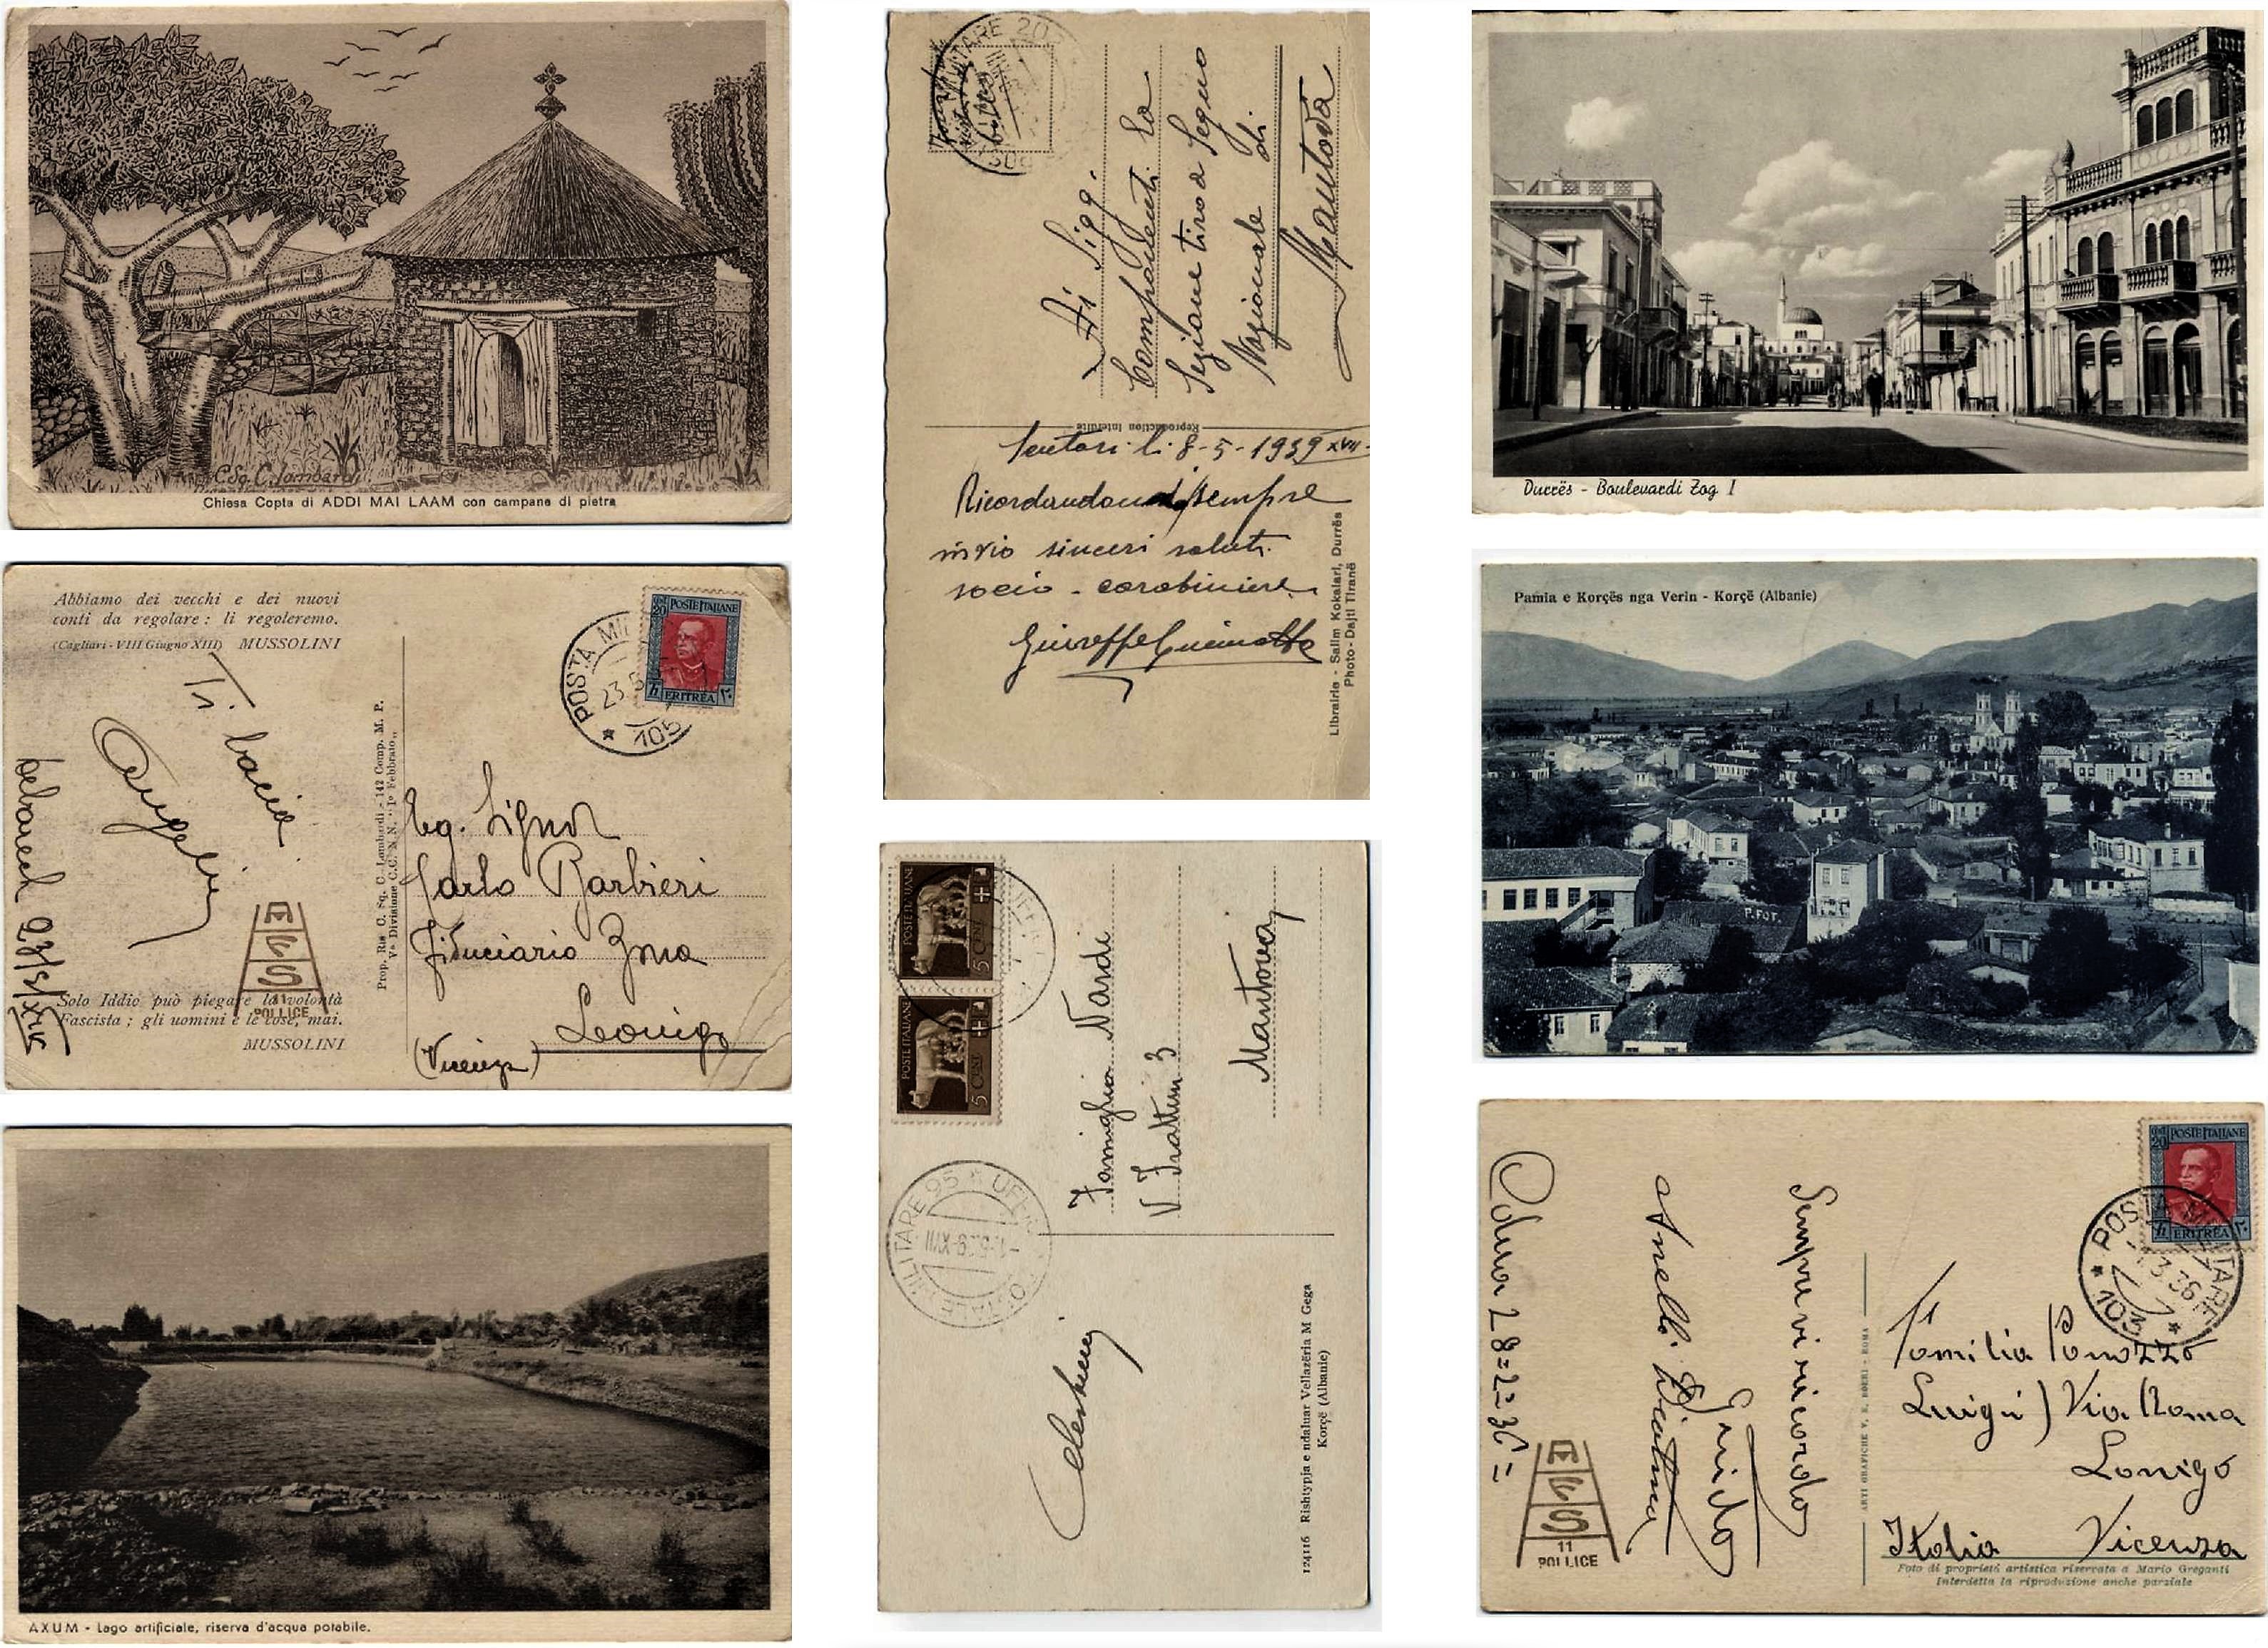 C. Sq. C. Lombardi
Chiesa Copta di ADDI MAI LAAM con campane di pietra
Abbiamo dei vecchi e dei nuovi
conti da regolare: li regoleremo.
(Cagliari - VIII Giugno XIII) MUSSOLINI
Ti bacia
Solo Iddio può piegare la volontà
Fascista; gli uomini e le cose, mai.
MUSSOLINI
11
POLLICE
Prop. Ris. C. Sq. C. Lombardi - 142 Comp. M. P.
Vª Divisione C.C. N.N. "1º Febbraio"
POSTA MI
23.5
105
20 POSTE ITALIANE
ERITREA
Eg. Signor
Carlo Barbieri
Fiduciario Zona
Lonigo
(Vicenza)
AXUM - Lago artificiale, riserva d'acqua potabile.
Ai Sigg.
Componenti la
Sezione tiro a Segno
Nazionale di
Mantova
Reproduction Interdite
Scutari li 8-5-1939 XVII
sempre
invio sinceri saluti
socio - carabiniere
Giuseppe
Librairie - Salim Kokalari, Durrës
Photo-Dajti Tiranë
POSTE ITALIANE
5 CENT
POSTE ITALIANE
5 CENT
Famiglia Nardi
V. Frattini 3
Mantova
UFFI POSTALE MILITARE 95
-1.5.39-XVII
124116 Rishtypja e ndaluar Vellazëria M Gega
Korçë (Albanie)
Durrës - Boulevardi Zog I
Pamia e Korçës nga Verin - Korçë (Albanie)
P. FOT.
20 POSTE ITALIANE
ERITREA
POSTA MILITARE
3.36
103
Adua 28=2=36=
Sempre vi ricordo
Guido
11
POLLICE
ARTI GRAFICHE V. E. BOERI - ROMA
Familia Panozzo
Luigi) Via Roma
Lonigo
Italia Vicenza
Foto di proprietà artistica riservata a Mario Greganti
Interdetta la riproduzione anche parziale